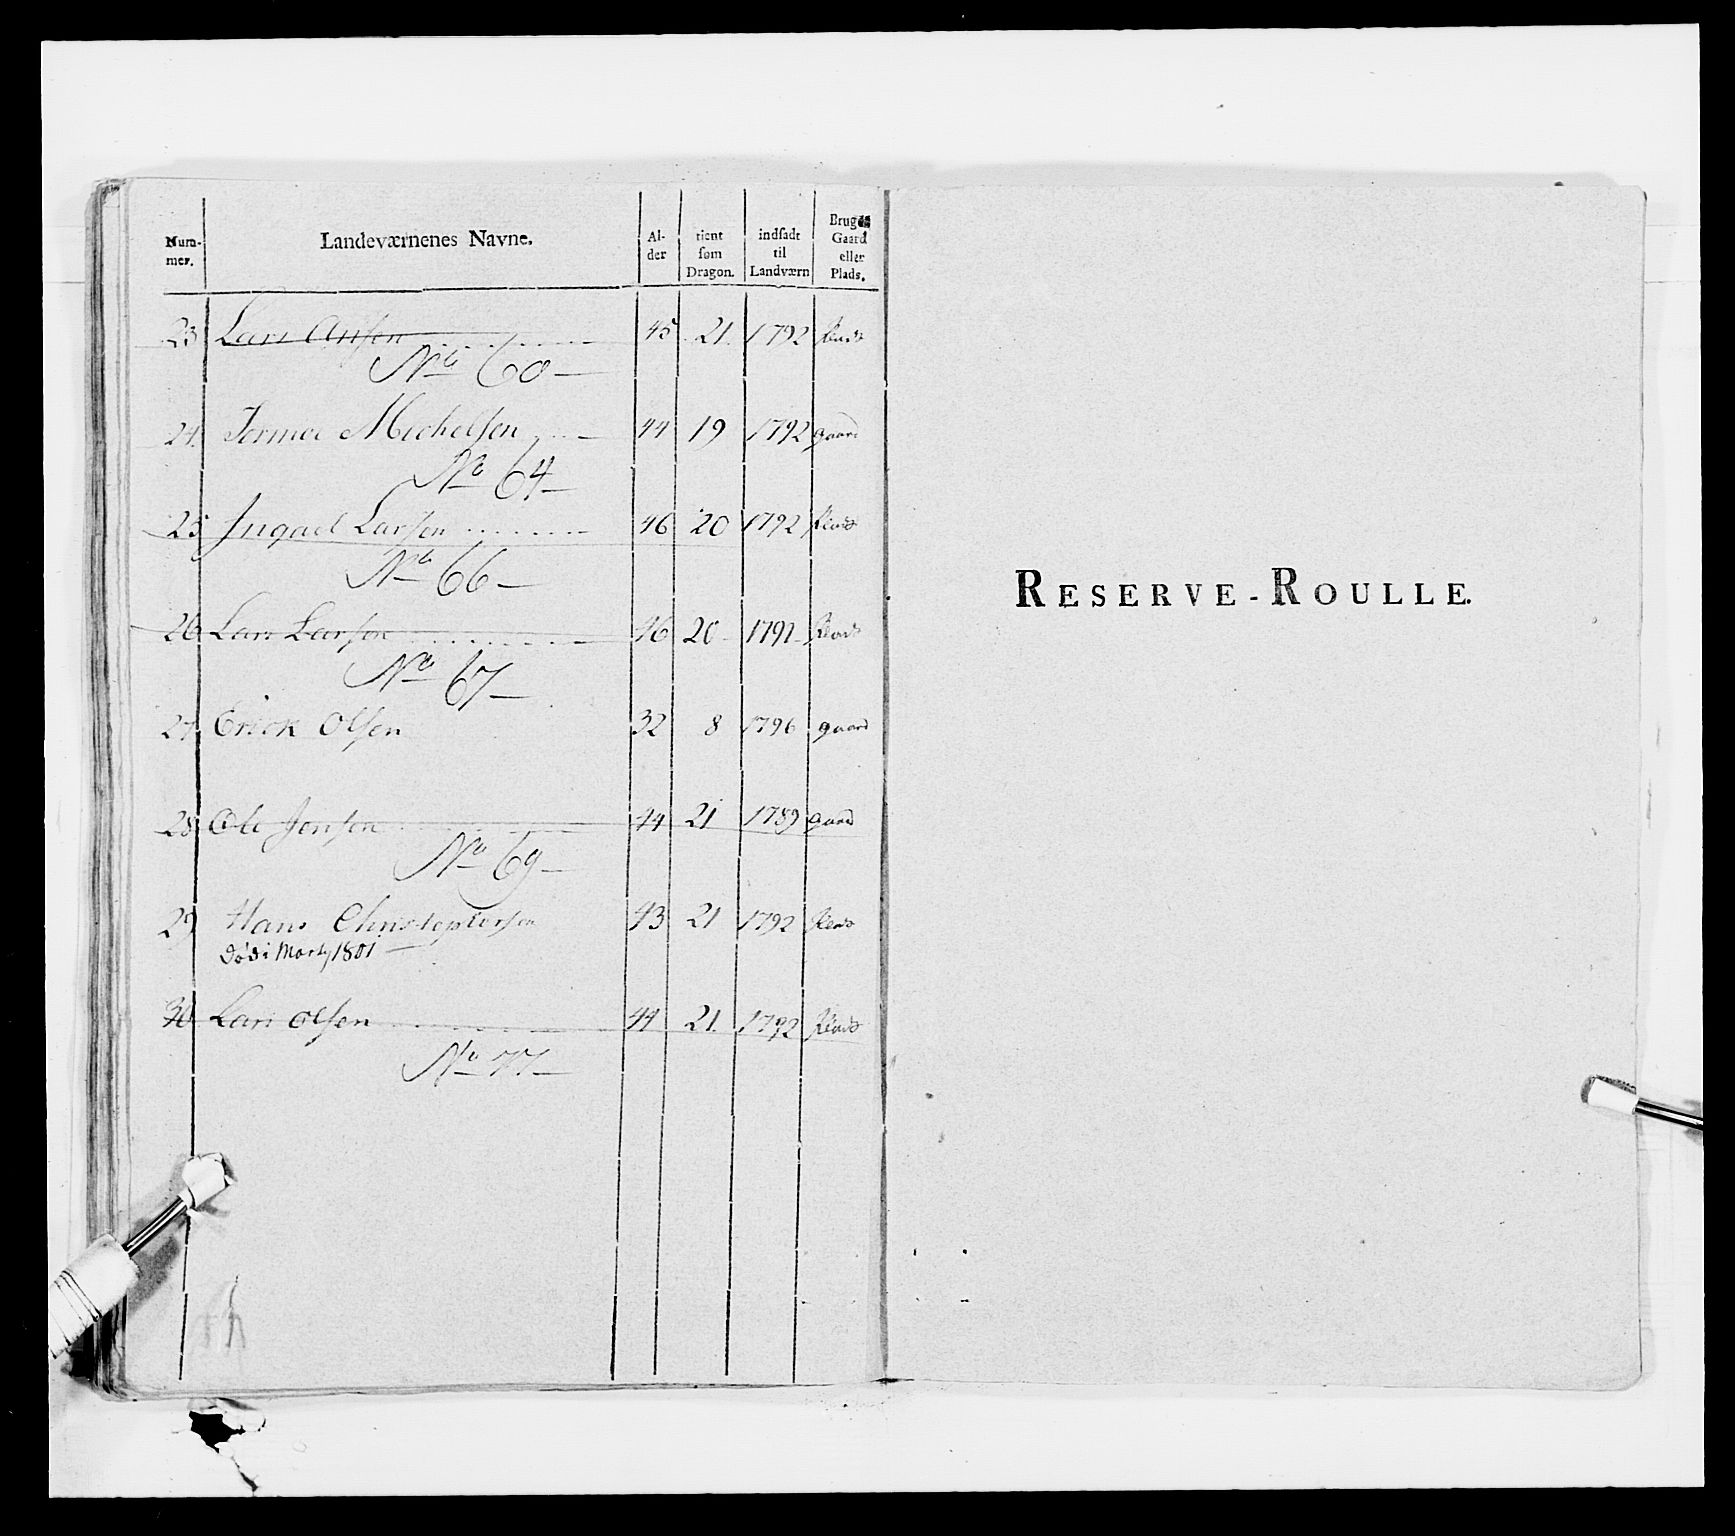 Num-mer. Landeværnenes Navne. Al-der tient som Dragon. indsadt til Landværn Bruger Gaard eller Plads.
23 Lars Ansen 45 21 1792 Plads
No 60
24 Michelsen 44 19 1792 gaard
No 64
25 Larsen 46 20 1792 Plads
No 66
26 Lars Larsen 46 20 1792 Plads
No 67
27 Erick Olsen 32 8 1796 gaard
28 Ole Jensen 44 21 1789 gaard
No 69
29 Hans Christophersen 43 21 1792 Plads
Død i 1801
30 Lars Olsen 44 21 1792 Plads
No 77
RESERVE-ROULLE.